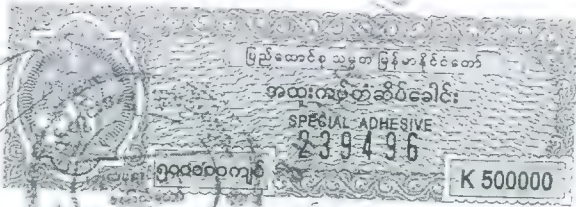 ပြည်ထောင်စု သမ္မတ မြန်မာနိုင်ငံတော်
အထူးကပ်တံဆိပ်ခေါင်း
SPECIAL ADHESIVE
239496
၅၀၀၀၀၀ကျပ်
K 500000